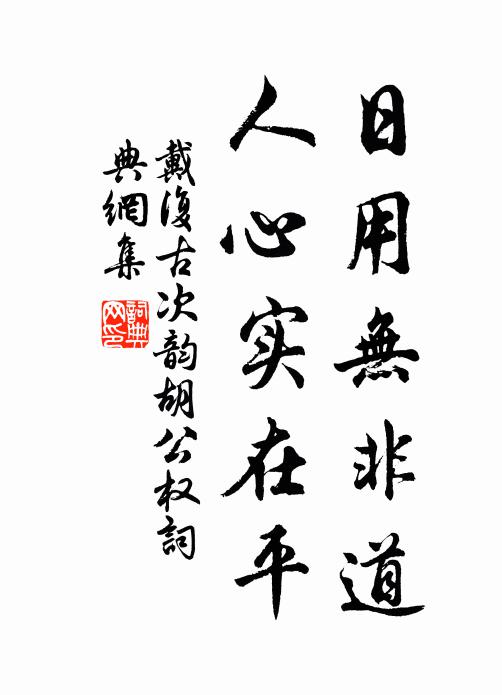 日用無非道
人心实在平
戴復古次韵胡公权詞
典網集
詞典
网印